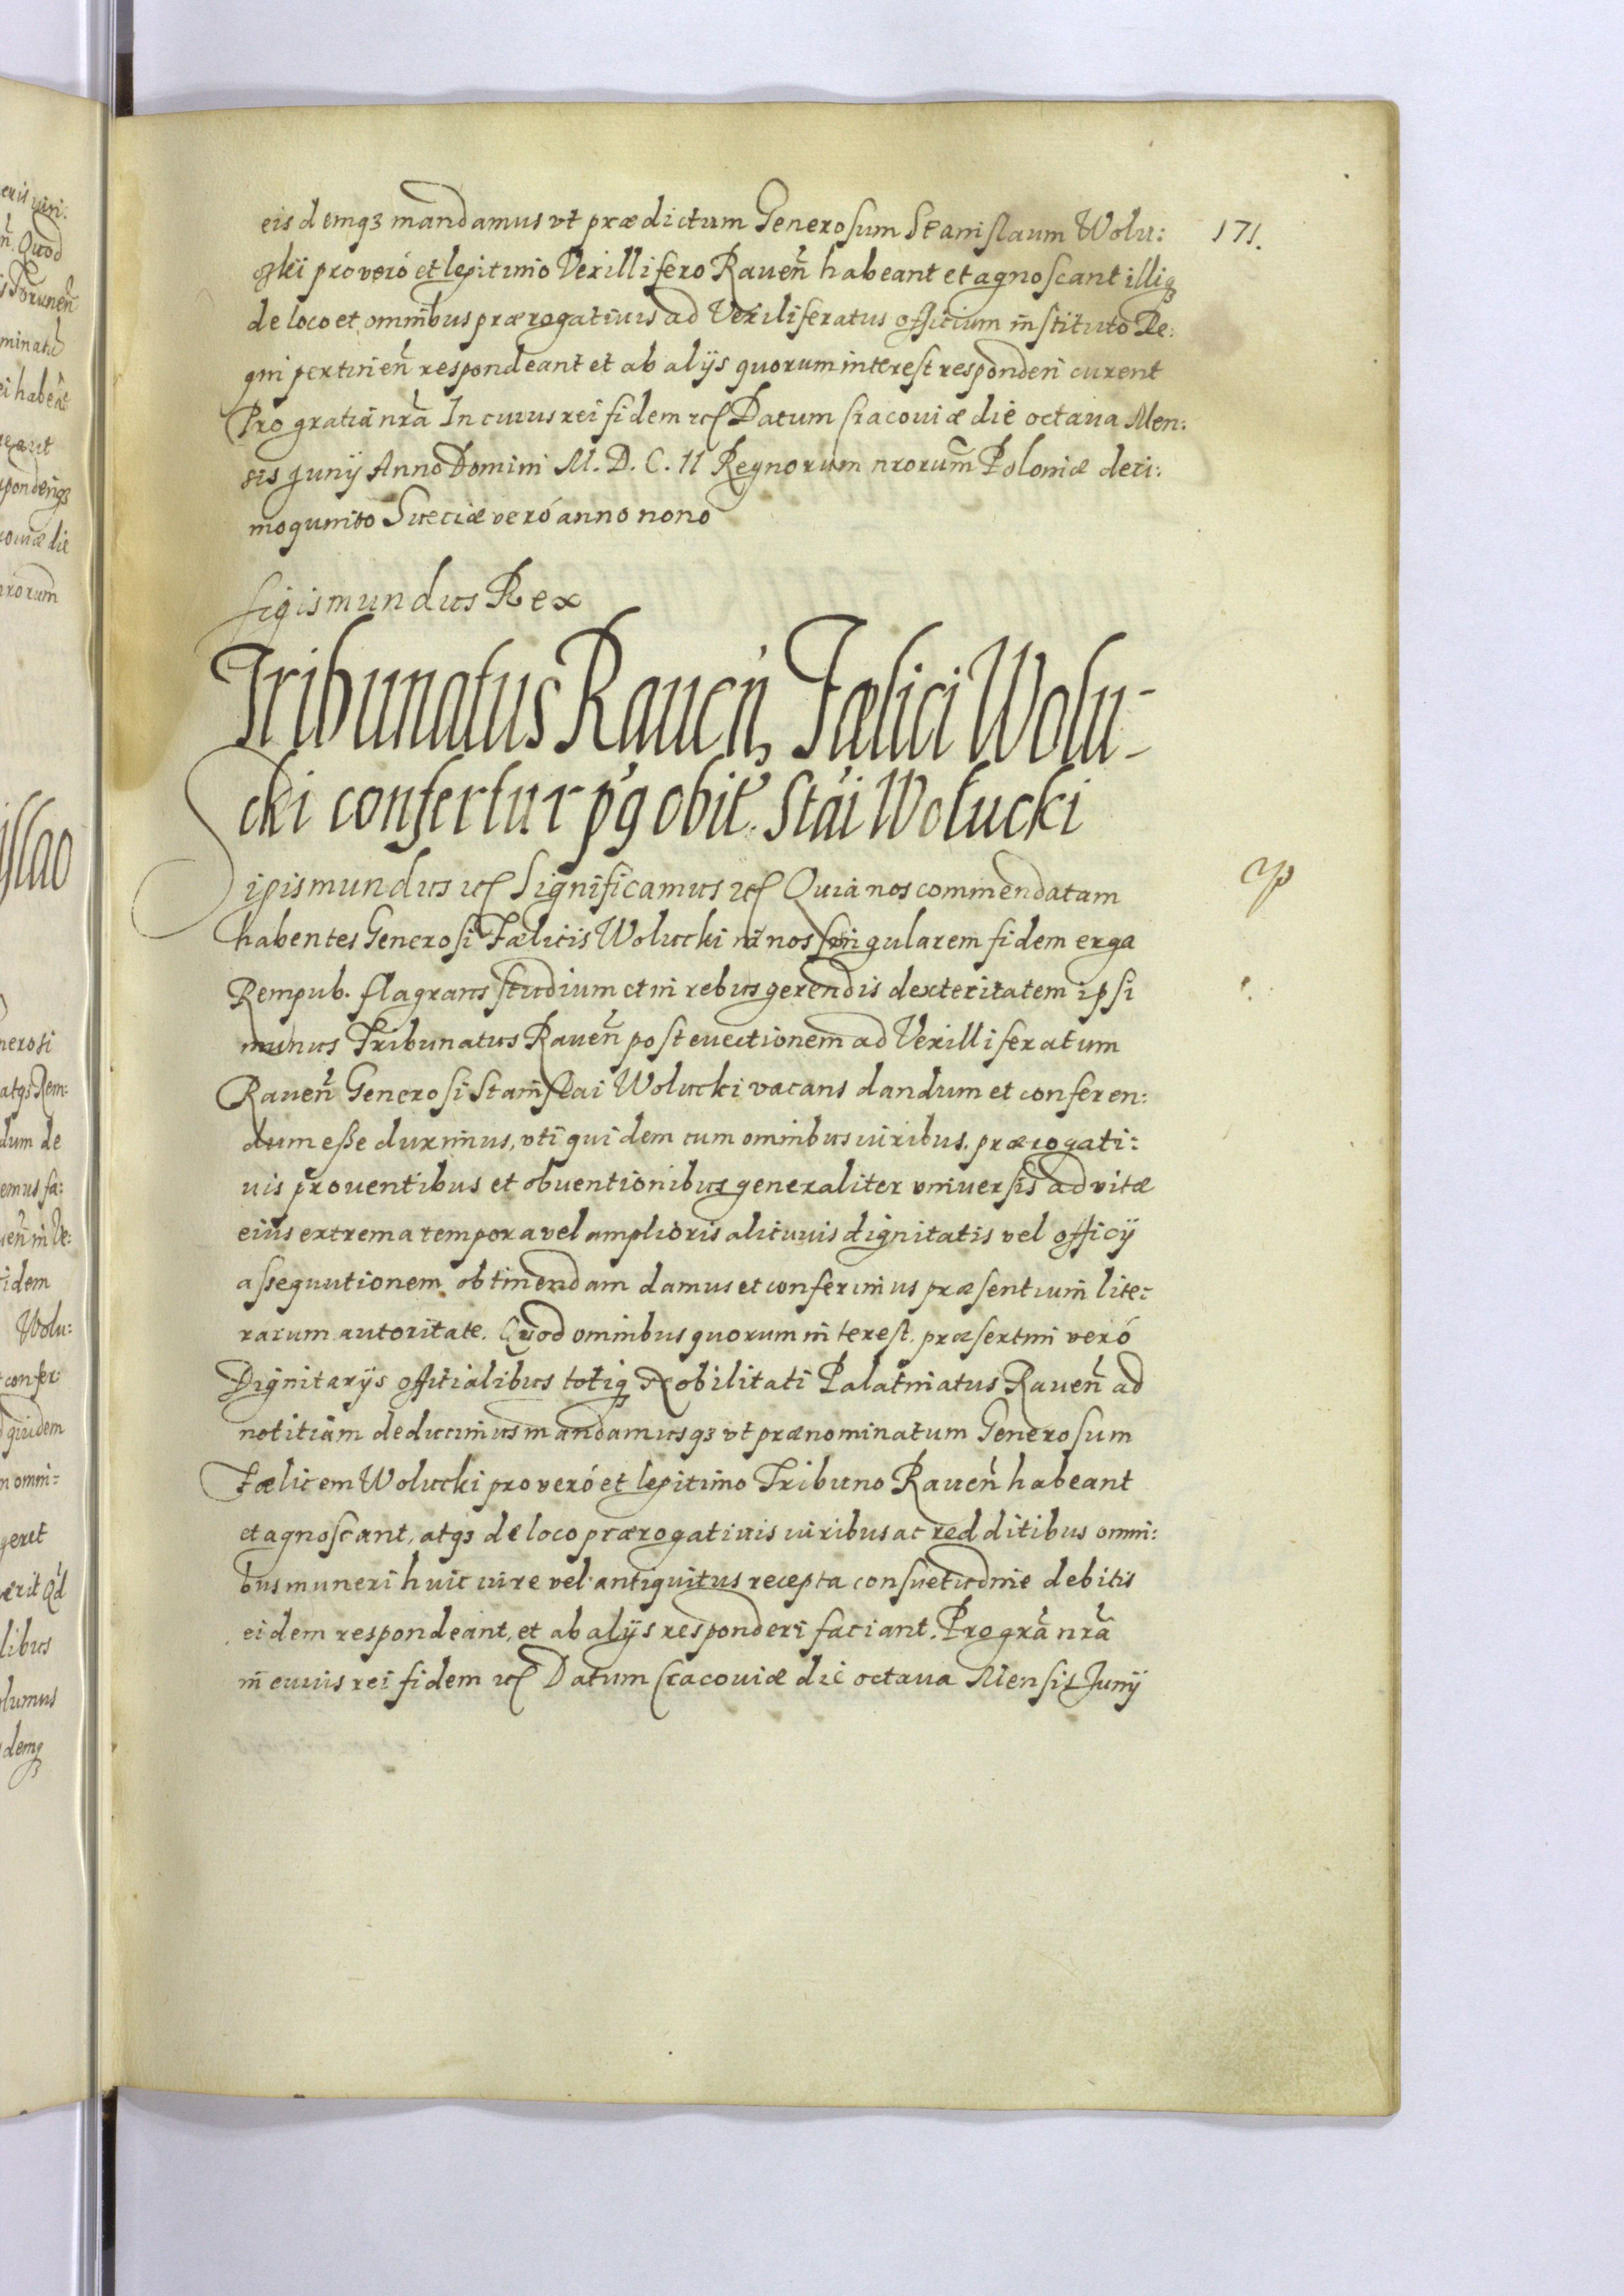 171.
eisdemqꝫ mandamus vt prædictum Generosum Stanislaum Wolu:
cki pro veró et legitimo Vexillifero Raueñ habeant et agnoscant illiqꝫ
de loco et omnibus prærogatiuis ad Vexiliferatus officium instituto Re:
gni pertinen̄ respondeant et ab alijs quorum interest responderi curent
Pro gratia nr̄a In cuius rei fidem etc̄ Datum Cracouiæ die octaua Men:
sis Junij Anno Domini M. D. C. II Regnorum nrorum̄ Poloniæ deci:
moquinto Sueciæ veró anno nono
Sigismundus Rex
Tribunatus Raueñ, Fælici Wolu-
cki confertur p̱g obit. Stāi Wolucki
Sigismundus etc̄ Significamus etc̄ Quia nos commendatam
habentes Generosi Fælicis Wolucki in nos singularem fidem erga
Rempub. flagrans studium et in rebus gerendis dexteritatem ipsi
munus Tribunatus Raueñ post euectionem ad Vexilliferatum
Raueñ Generosi Stanislai Wolucki vacans dandum et conferen:
dum eße duximus, vti quidem cum omnibus iuribus. prærogati:
uis prouentibus et obuentionibus generaliter vniuersis ad vitæ
eius extrema tempora vel amplioris alicuius dignitatis vel officij
assequutionem obtinendam damus et conferimus præsentium lite:
rarum autoritate. Quod omnibus quorum interest. præsertim veró
Dignitarijs officialibus totiqꝫ Nobilitati Palatinatus Raueñ ad
notitiam deducimus mandamusqꝫ vt prænominatum Generosum
Fælicem Wolucki pro veró et legitimo Tribuno Raueñ habeant
et agnoscant, atqꝫ de loco prærogatiuis iuribus ac redditibus omni:
bus muneri huic iure vel antiquitus recepta consuetudine debitis
eidem respondeant, et ab alijs responderi faciant. Pro gr̄a nr̄a
in cuius rei fidem etc̄ Datum Cracouiæ die octaua Mensis Junij